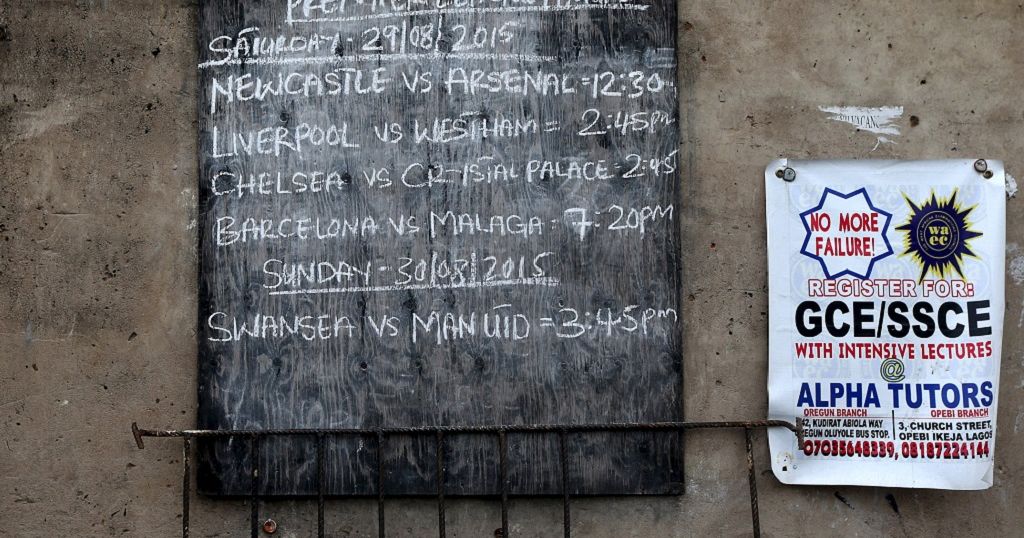 PREMIER LEAGUE
SATURDAY - 29/08/2015
NEWCASTLE VS ARSENAL = 12:30
LIVERPOOL VS WESTHAM = 2:45pm
CHELSEA VS CR-ISTAL PALACE - 2:45
BARCELONA VS MALAGA = 7:20PM
SUNDAY - 30/08/2015
SWANSEA VS MAN UTD = 3:45pm
VACANC
NO MORE
FAILURE!
wa
ec
REGISTER FOR:
GCE/SSCE
WITH INTENSIVE LECTURES
@
ALPHA TUTORS
OREGUN BRANCH
42, KUDIRAT ABIOLA WAY
EGUN OLUYOLE BUS STOP.
OPEBI BRANCH
3, CHURCH STREET,
OPEBI IKEJA LAGOS
07035648339, 08187224144